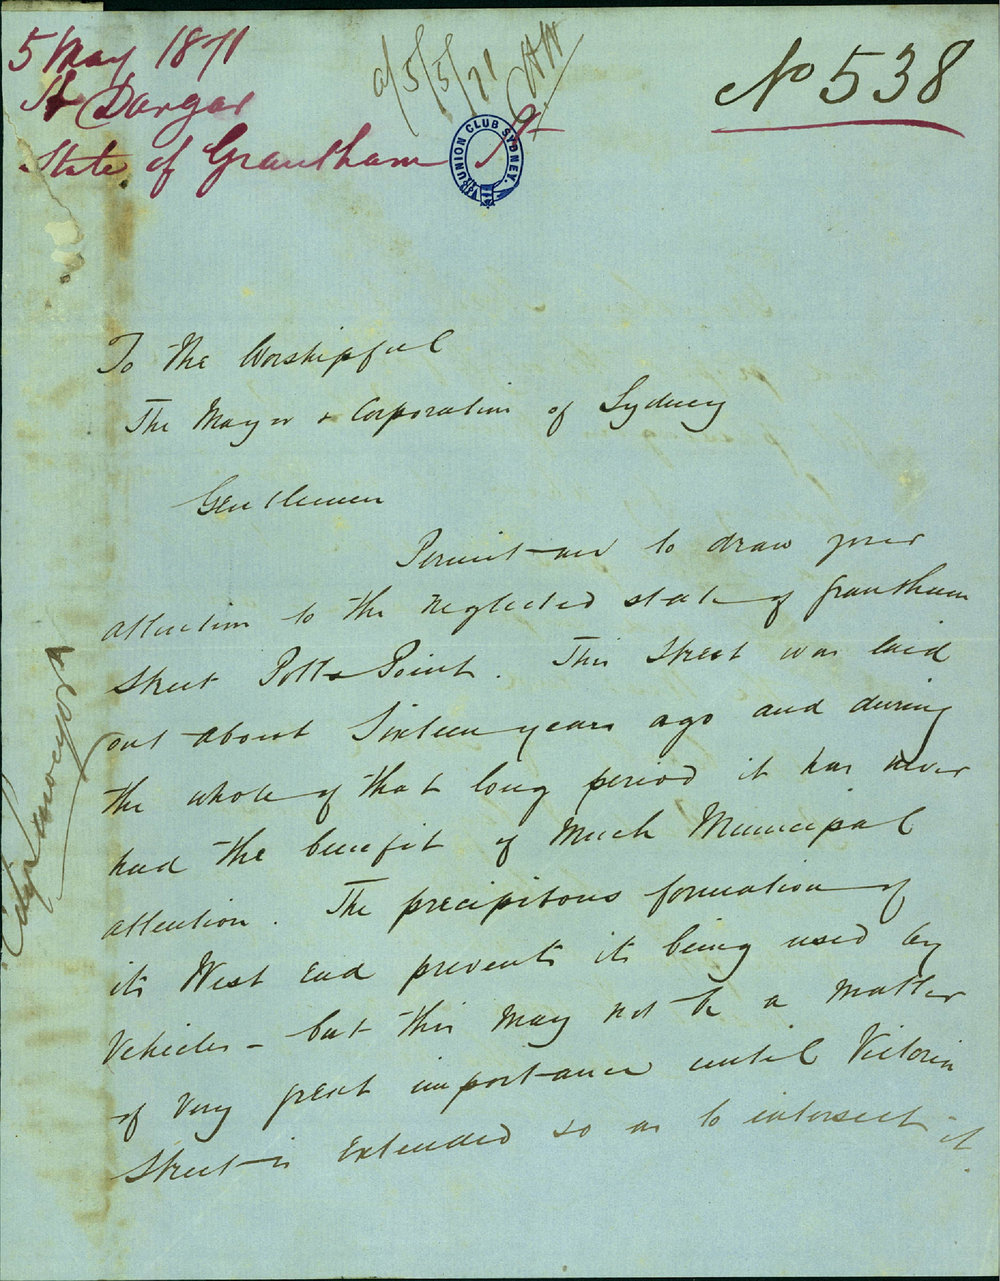 5 May 1871
H Dangar
State of Grantham St
a/5/5/71
No 538
UNION CLUB SYDNEY.
To the Worshipful
The Mayor & Corporation of Sydney
Gentlemen
Permit me to draw your
attention to the neglected state of Grantham
Street Potts Point. This Street was laid
out about Sixteen years ago and during
the whole of that long period it has never
had the benefit of much Municipal
attention. The precipitous formation of
its West end prevents its being used by
Vehicles - but this may not be a matter
of very great importance until Victoria
Street is extended so as to intersect it.
City Surveyor